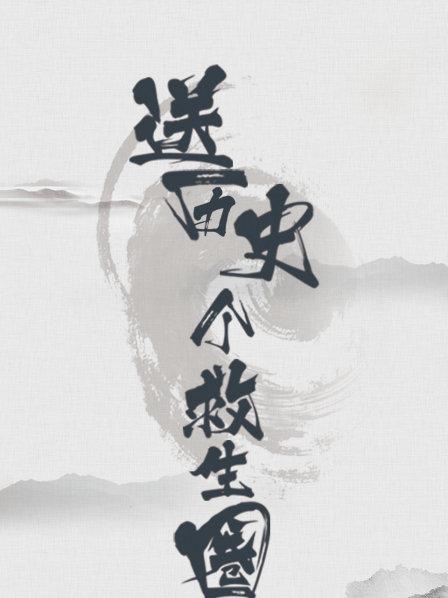 送历史个救生圈